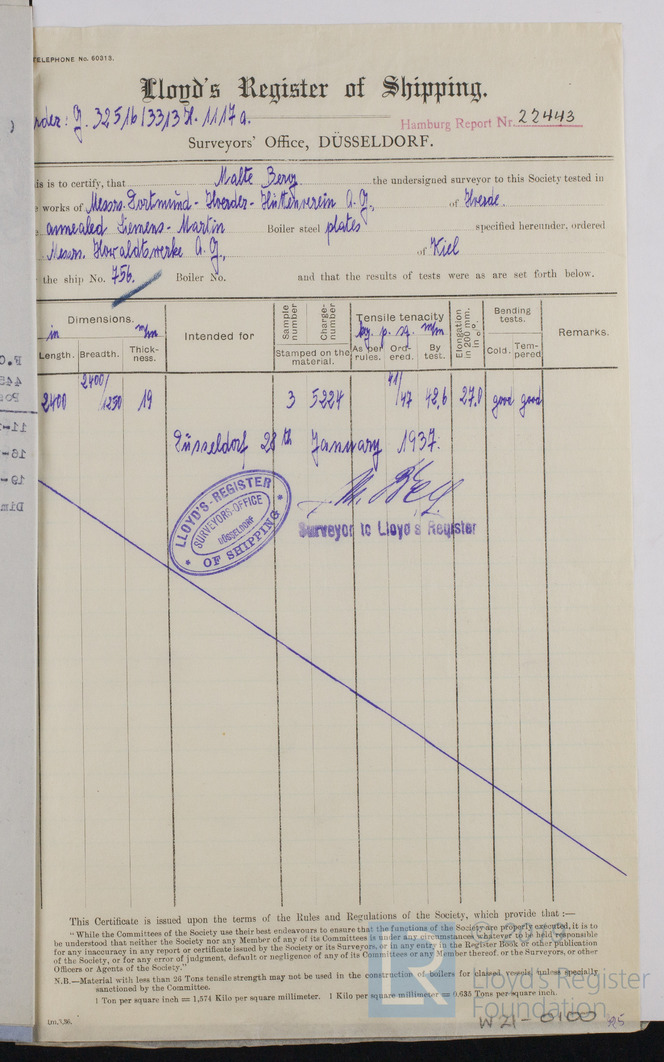 TELEPHONE No. 60313.
Lloyd's Register of Shipping.
rder: J. 3251b/3313 H. 1117a.
Hamburg Report Nr. 22443
Surveyors' Office, DÜSSELDORF.
is is to certify, that Malte Berg the undersigned surveyor to this Society tested in
e works of Messrs. Dortmund-Hoerder-Hüttenverein A.G., of Hoerde.
e annealed Siemens-Martin Boiler steel plates specified hereunder, ordered
Messrs. Howaldtswerke A.G., of Kiel
the ship No. 756. Boiler No. and that the results of tests were as are set forth below.
Dimensions.
in m/m
Length. Breadth. Thick-ness.
Intended for
Sample number
Charge-number
Stamped on the material.
Tensile tenacity
kg. p. sq. m/m
As per rules. Ord-ered. By test.
Elongation in 200 mm. in %.
Bending tests.
Cold. Tem-pered
Remarks.
2400 2400/1250 19 3 5224 41/47 42,6 27,0 good good
Düsseldorf 28th January 1937.
LLOYD'S-REGISTER
SURVEYORS-OFFICE
DÜSSELDORF
OF SHIPPING
M. Berg
Surveyor to Lloyd's Register
This Certificate is issued upon the terms of the Rules and Regulations of the Society, which provide that :—
"While the Committees of the Society use their best endeavours to ensure that the functions of the Society are properly executed, it is to
be understood that neither the Society nor any Member of any of its Committees is under any circumstances whatever to be held responsible
for any inaccuracy in any report or certificate issued by the Society or its Surveyors, or in any entry in the Register Book or other publication
of the Society, or for any error of judgment, default or negligence of any of its Committees or any Member thereof, or the Surveyors, or other
Officers or Agents of the Society."
N.B.—Material with less than 26 Tons tensile strength may not be used in the construction of boilers for classed vessels unless specially
sanctioned by the Committee.
1 Ton per square inch = 1,574 Kilo per square millimeter. 1 Kilo per square millimeter = 0,635 Tons per square inch.
Lloyd's Register
Foundation
W21-0100